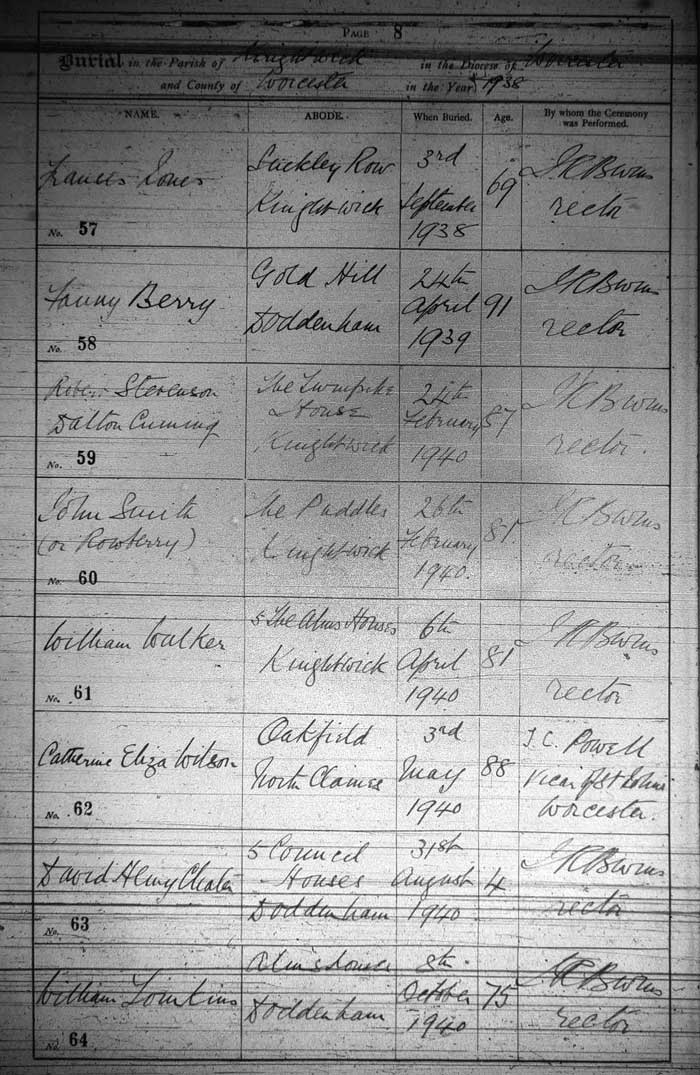 PAGE 8
Burial in the Parish of Knightwick in the Diocese of Worcester
and County of Worcester in the Year 1938
NAME. ABODE. When Buried. Age. By whom the Ceremony was Performed.
Frances Jones
No. 57
Suckley Row
Knightwick
3rd
September
1938
69
rector
Fanny Berry
No. 58
Gold Hill
Doddenham
24th
April
1939
91
rector
Robert Stevenson
Dalton Cuming
No. 59
The Turnpike
House
Knightwick
24th
February
1940
87
rector.
John Smith
(or Rowberry)
No. 60
The Puddles
Knightwick
26th
February
1940.
rector
William Walker
No. 61
5 The Alms Houses
Knightwick
6th
April
1940
rector
Catherine Eliza Wilson
No. 62
Oakfield
North Claines
3rd
May
1940
88
J. C. Powell
Vicar of St Johns
Worcester.
David Henry
No. 63
5 Council
Houses
Doddenham
31st
August
1940
4
rector
William Tomkins
No. 64
Almshouse
Doddenham
8th
October
1940
75
rector